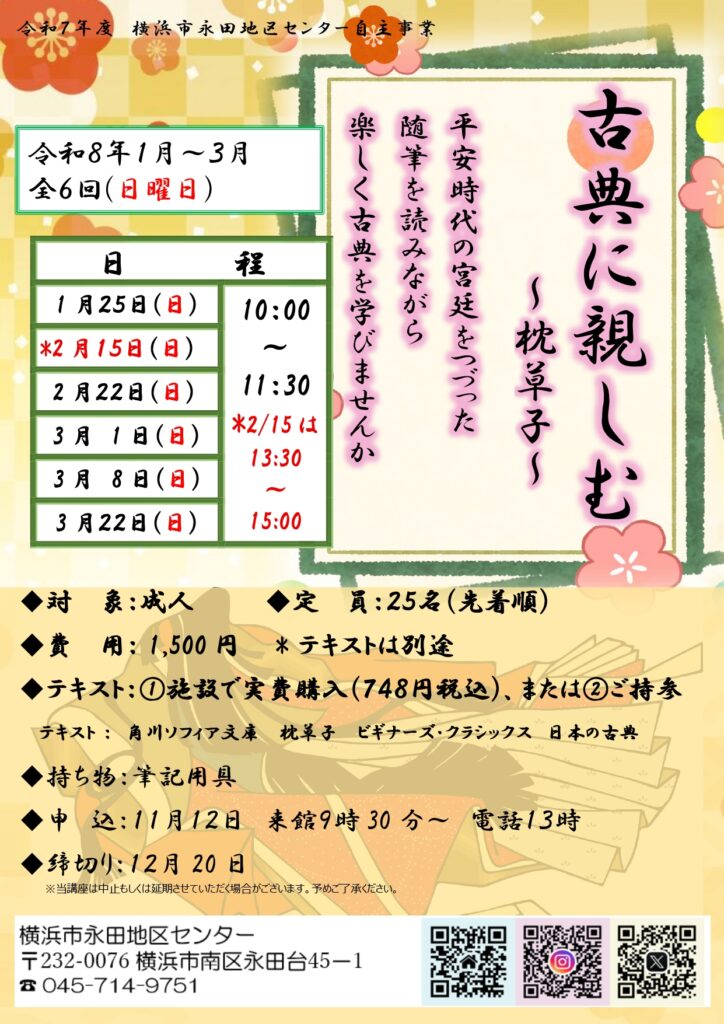 令和7年度　横浜市永田地区センター自主事業
古典に親しむ
～枕草子～
平安時代の宮廷をつづった
随筆を読みながら
楽しく古典を学びませんか
令和8年1月～3月
全6回(日曜日)
日　程
1月25日(日)
*2月15日(日)
2月22日(日)
3月　1日(日)
3月　8日(日)
3月22日(日)
10:00
～
11:30
*2/15は
13:30
～
15:00
◆対　象:成人　◆定　員:25名(先着順)
◆費　用: 1,500円　*テキストは別途
◆テキスト:①施設で実費購入(748円税込)、または②ご持参
テキスト:　角川ソフィア文庫　枕草子　ビギナーズ・クラシックス　日本の古典
◆持ち物:筆記用具
◆申　込:11月12日　来館9時30分～　電話13時
◆締切り:12月20日
※当講座は中止もしくは延期させていただく場合がございます。予めご了承ください。
横浜市永田地区センター
〒232-0076 横浜市南区永田台45ー1
☎045-714-9751